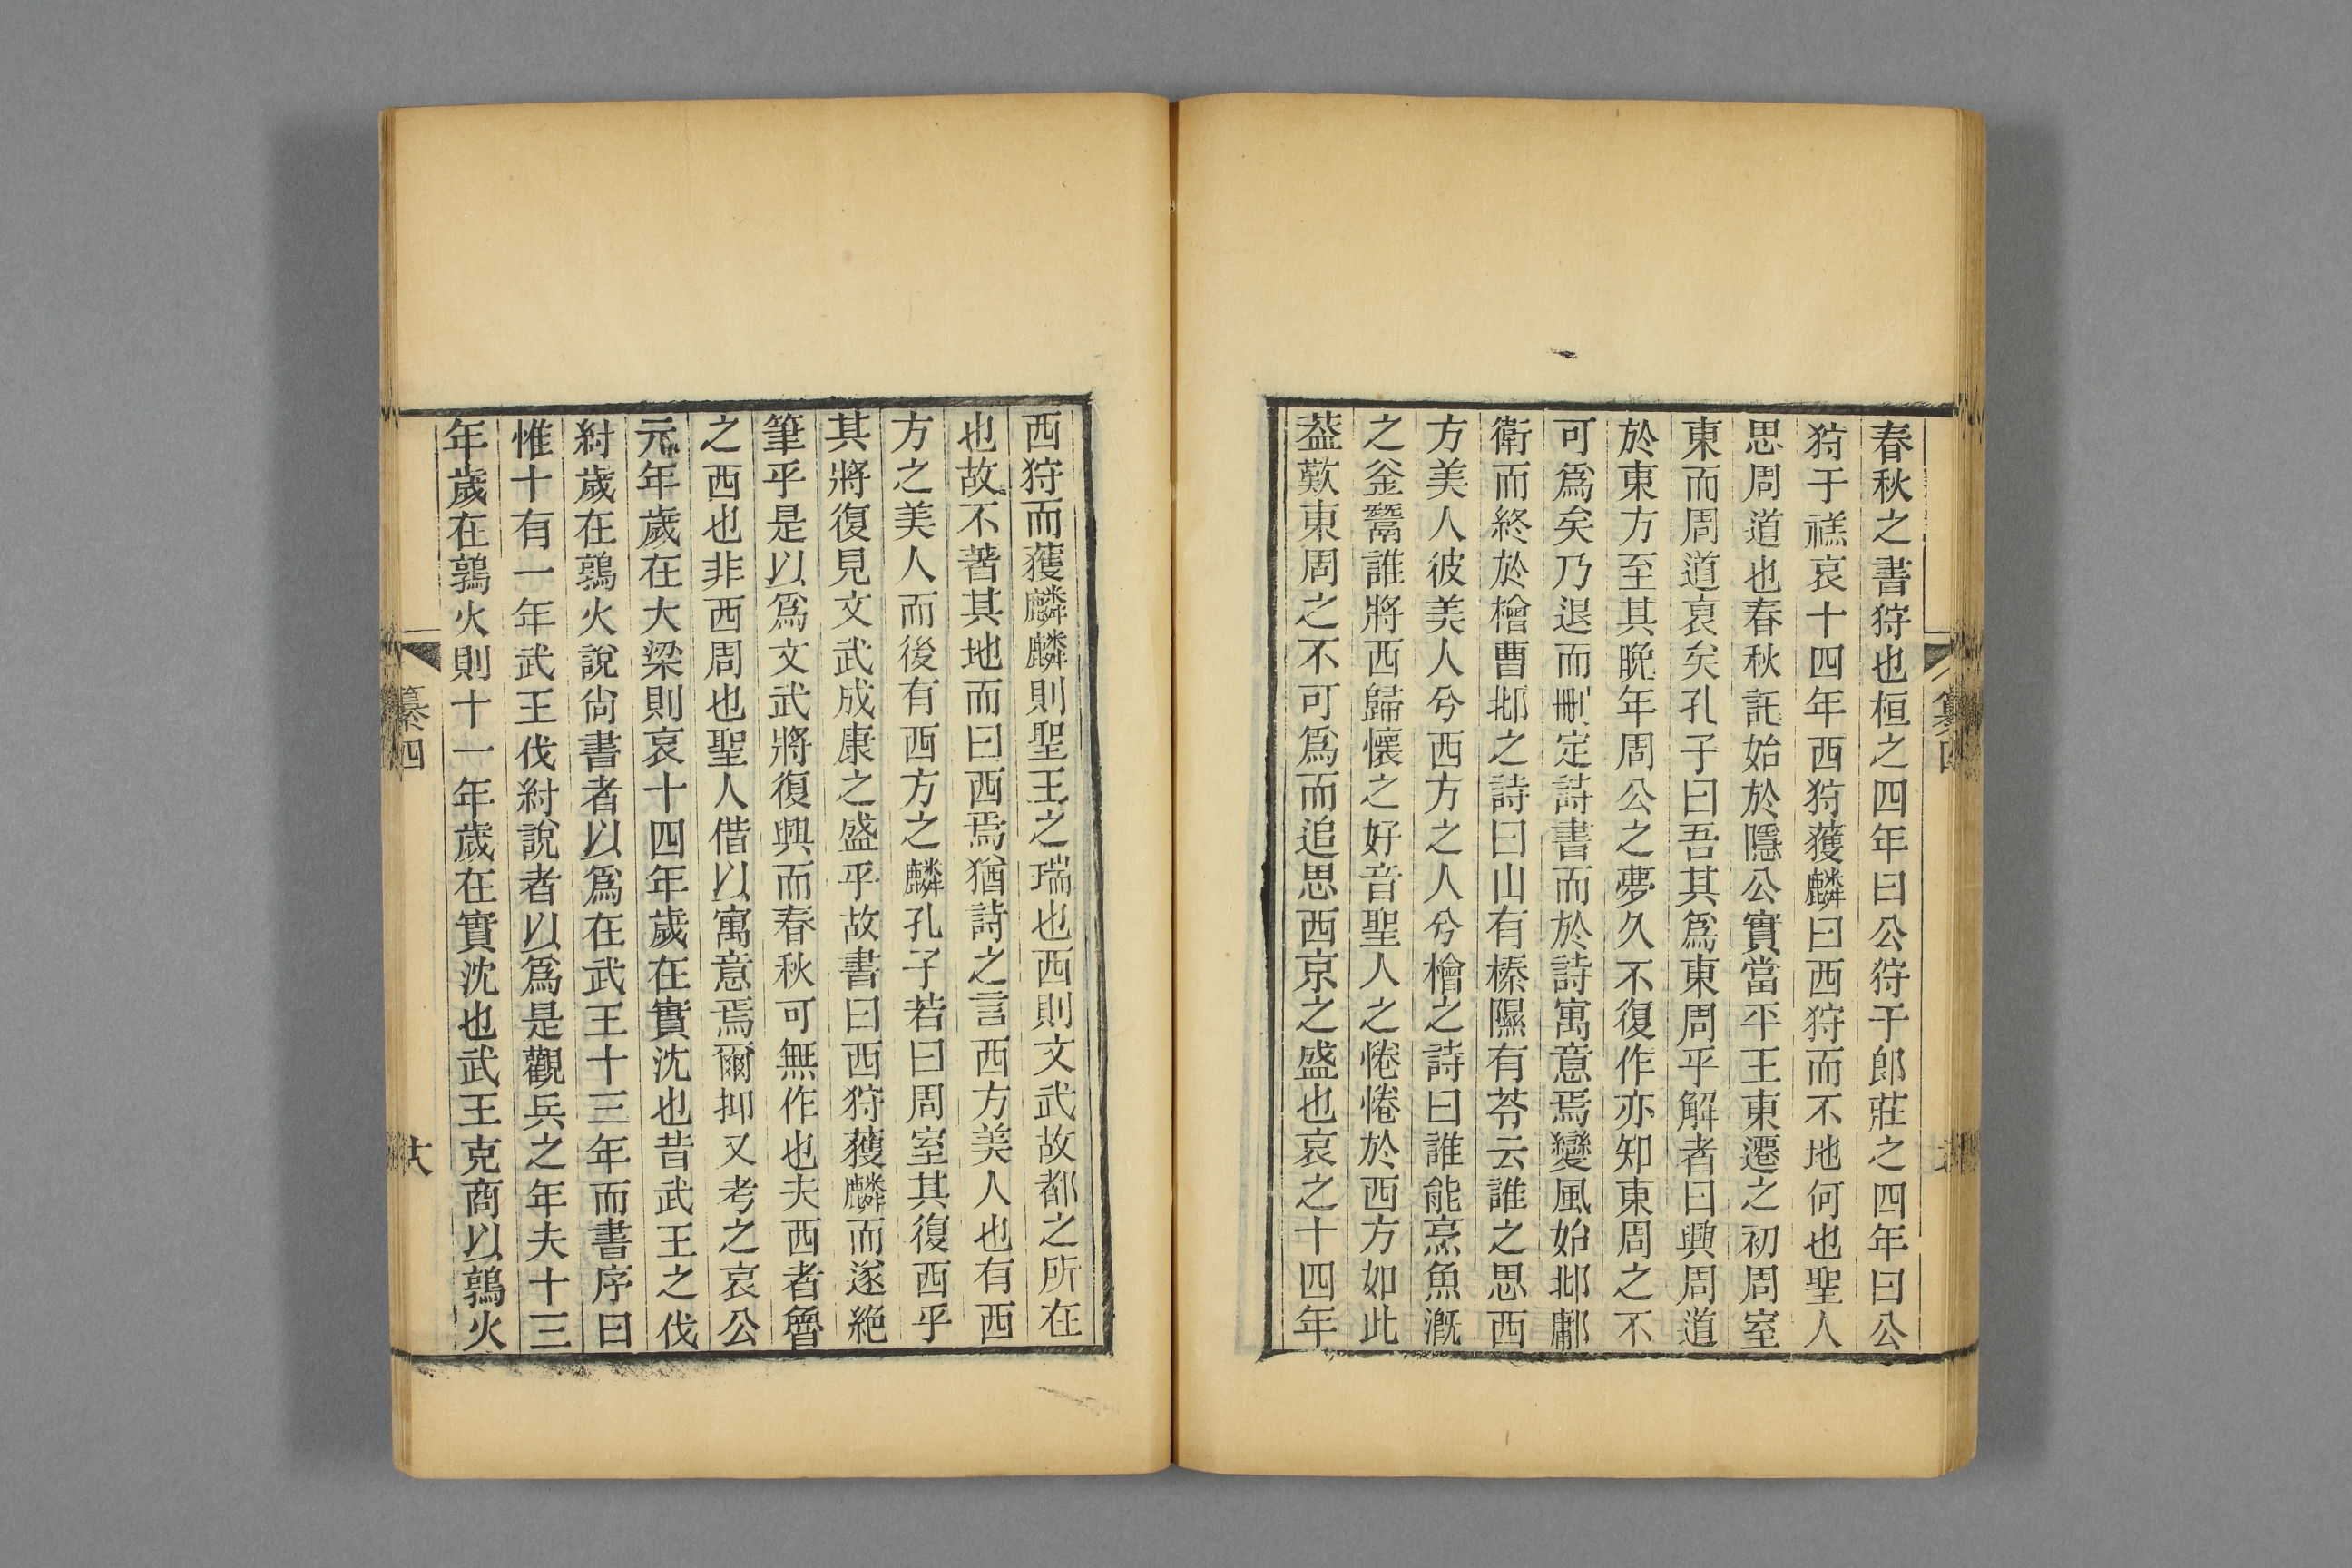 春秋之書狩也桓之四年曰公狩于郎莊之四年曰公
狩于禚哀十四年西狩獲麟曰西狩而不地何也聖人
思周道也春秋託始於隱公實當平王東遷之初周室
東而周道哀矣孔子曰吾其爲東周乎解者曰興周道
於東方至其晩年周公之夢久不復作亦知東周之不
可爲矣乃退而刪定詩書而於詩寓意焉變風始邶鄘
衛而終於檜曹邶之詩曰山有榛隰有苓云誰之思西
方美人彼美人兮西方之人兮檜之詩曰誰能烹魚漑
之釜鬵誰將西歸懷之好音聖人之惓惓於西方如此
葢歎東周之不可爲而追思西京之盛也哀之十四年
西狩而獲麟麟則聖王之瑞也西則文武故都之所在
也故不著其地而曰西焉猶詩之言西方美人也有西
方之美人而後有西方之麟孔子若曰周室其復西乎
其將復見文武成康之盛乎故書曰西狩獲麟而遂絶
筆乎是以爲文武將復興而春秋可無作也夫西者魯
之西也非西周也聖人借以寓意焉爾抑又考之哀公
元年歲在大梁則哀十四年歲在實沈也昔武王之伐
紂歲在鶉火說尙書者以爲在武王十三年而書序曰
惟十有一年武王伐紂說者以爲是觀兵之年夫十三
年歲在鶉火則十一年歲在實沈也武王克商以鶉火
纂四